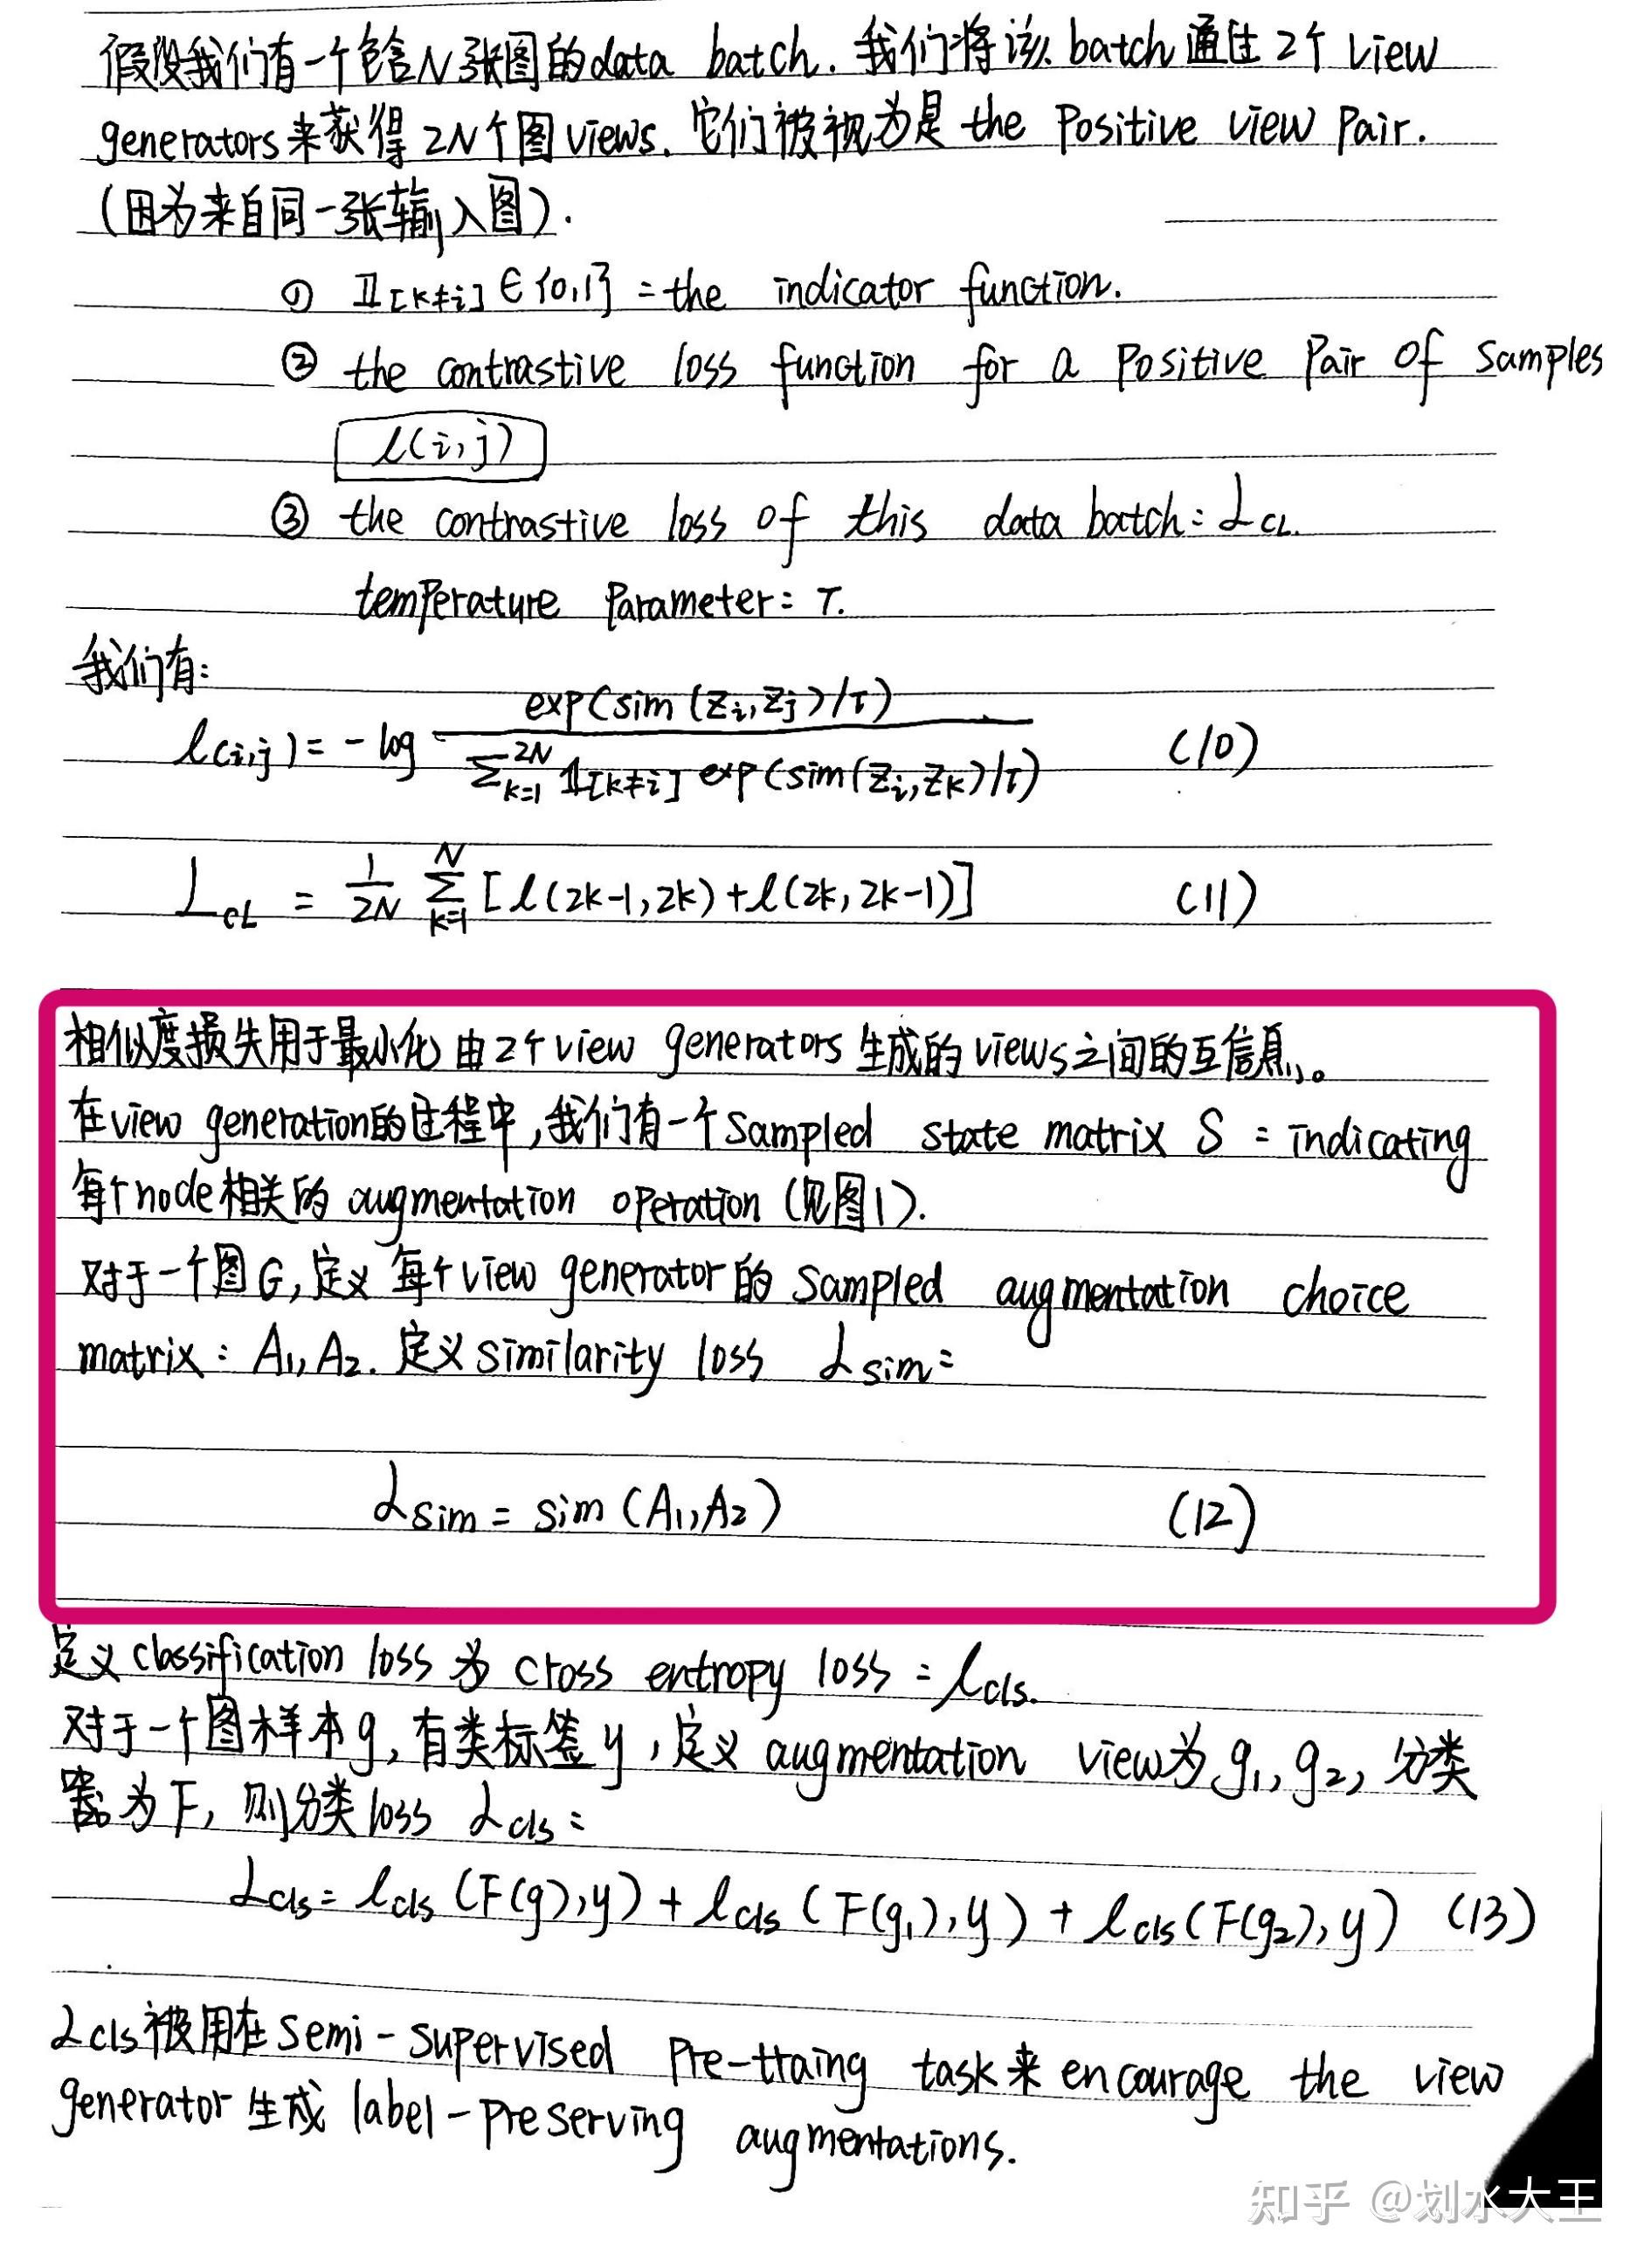 假设我们有一个包含N张图的data batch. 我们将该 batch 通过 2个 view
generators 来获得 2N个图 views. 它们被视为是 the Positive view Pair.
(因为来自同一张输入图).
① 𝟙[k≠i] ∈ {0,1} = the indicator function.
② the contrastive loss function for a Positive Pair of Samples
ℓ(i,j)
③ the contrastive loss of this data batch: ℒCL.
temperature Parameter: τ.
我们有:
ℓ(i,j) = -log exp(sim(zi,zj)/τ) / Σ_{k=1}^{2N} 𝟙[k≠i] exp(sim(zi,zk)/τ) (10)
LCL = 1/2N Σ_{k=1}^{N} [ℓ(2k-1,2k)+ℓ(2k,2k-1)] (11)
相似度损失用于最小化 由2个view generators 生成的 views之间的互信息。
在view generation的过程中,我们有一个Sampled state matrix S = indicating
每个node相关的 augmentation operation (见图1).
对于一个图G,定义 每个view generator的 Sampled augmentation choice
matrix: A1,A2. 定义 similarity loss ℒsim=
ℒsim = sim (A1,A2) (12)
定义 classification loss 为 cross entropy loss = ℓcls.
对于一个图样本g,有类标签y,定义 augmentation view为g1,g2,分类
器为F,则分类loss ℒcls:
ℒcls= ℓcls (F(g),y) + ℓcls (F(g1),y) + ℓcls(F(g2),y) (13)
ℒcls被用在 semi-supervised Pre-traing task来 encourage the view
generator 生成 label-preserving augmentations.
知乎 @划水大王